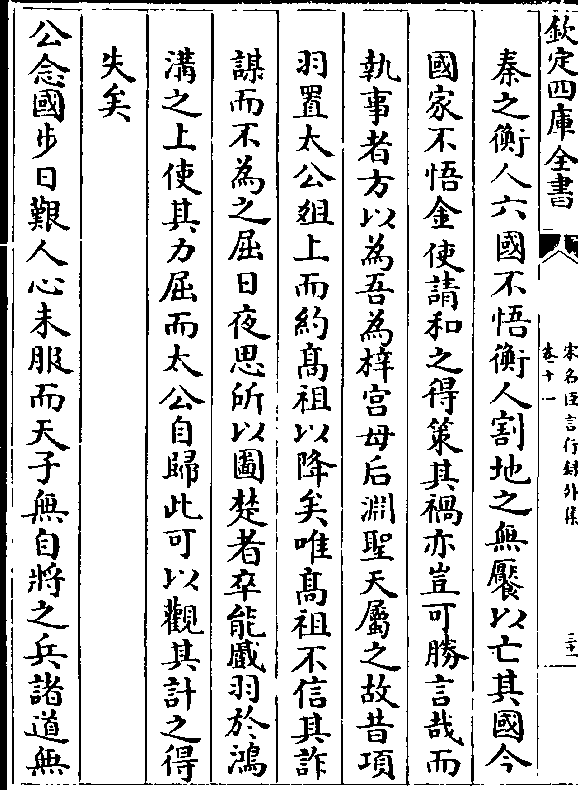 欽定四庫全書
宋名臣言行録外集
卷十一
秦之衡人六國不悟衡人割地之無饜以亡其國今
國家不悟金使請和之得策其禍亦豈可勝言哉而
執事者方以為吾為梓宫母后淵聖天屬之故昔項
羽置太公俎上而約髙祖以降矣唯髙祖不信其詐
謀而不為之屈日夜思所以圖楚者卒能蹙羽於鴻
溝之上使其力屈而太公自歸此可以觀其計之得
失矣
公念國步日艱人心未服而天子無自將之兵諸道無